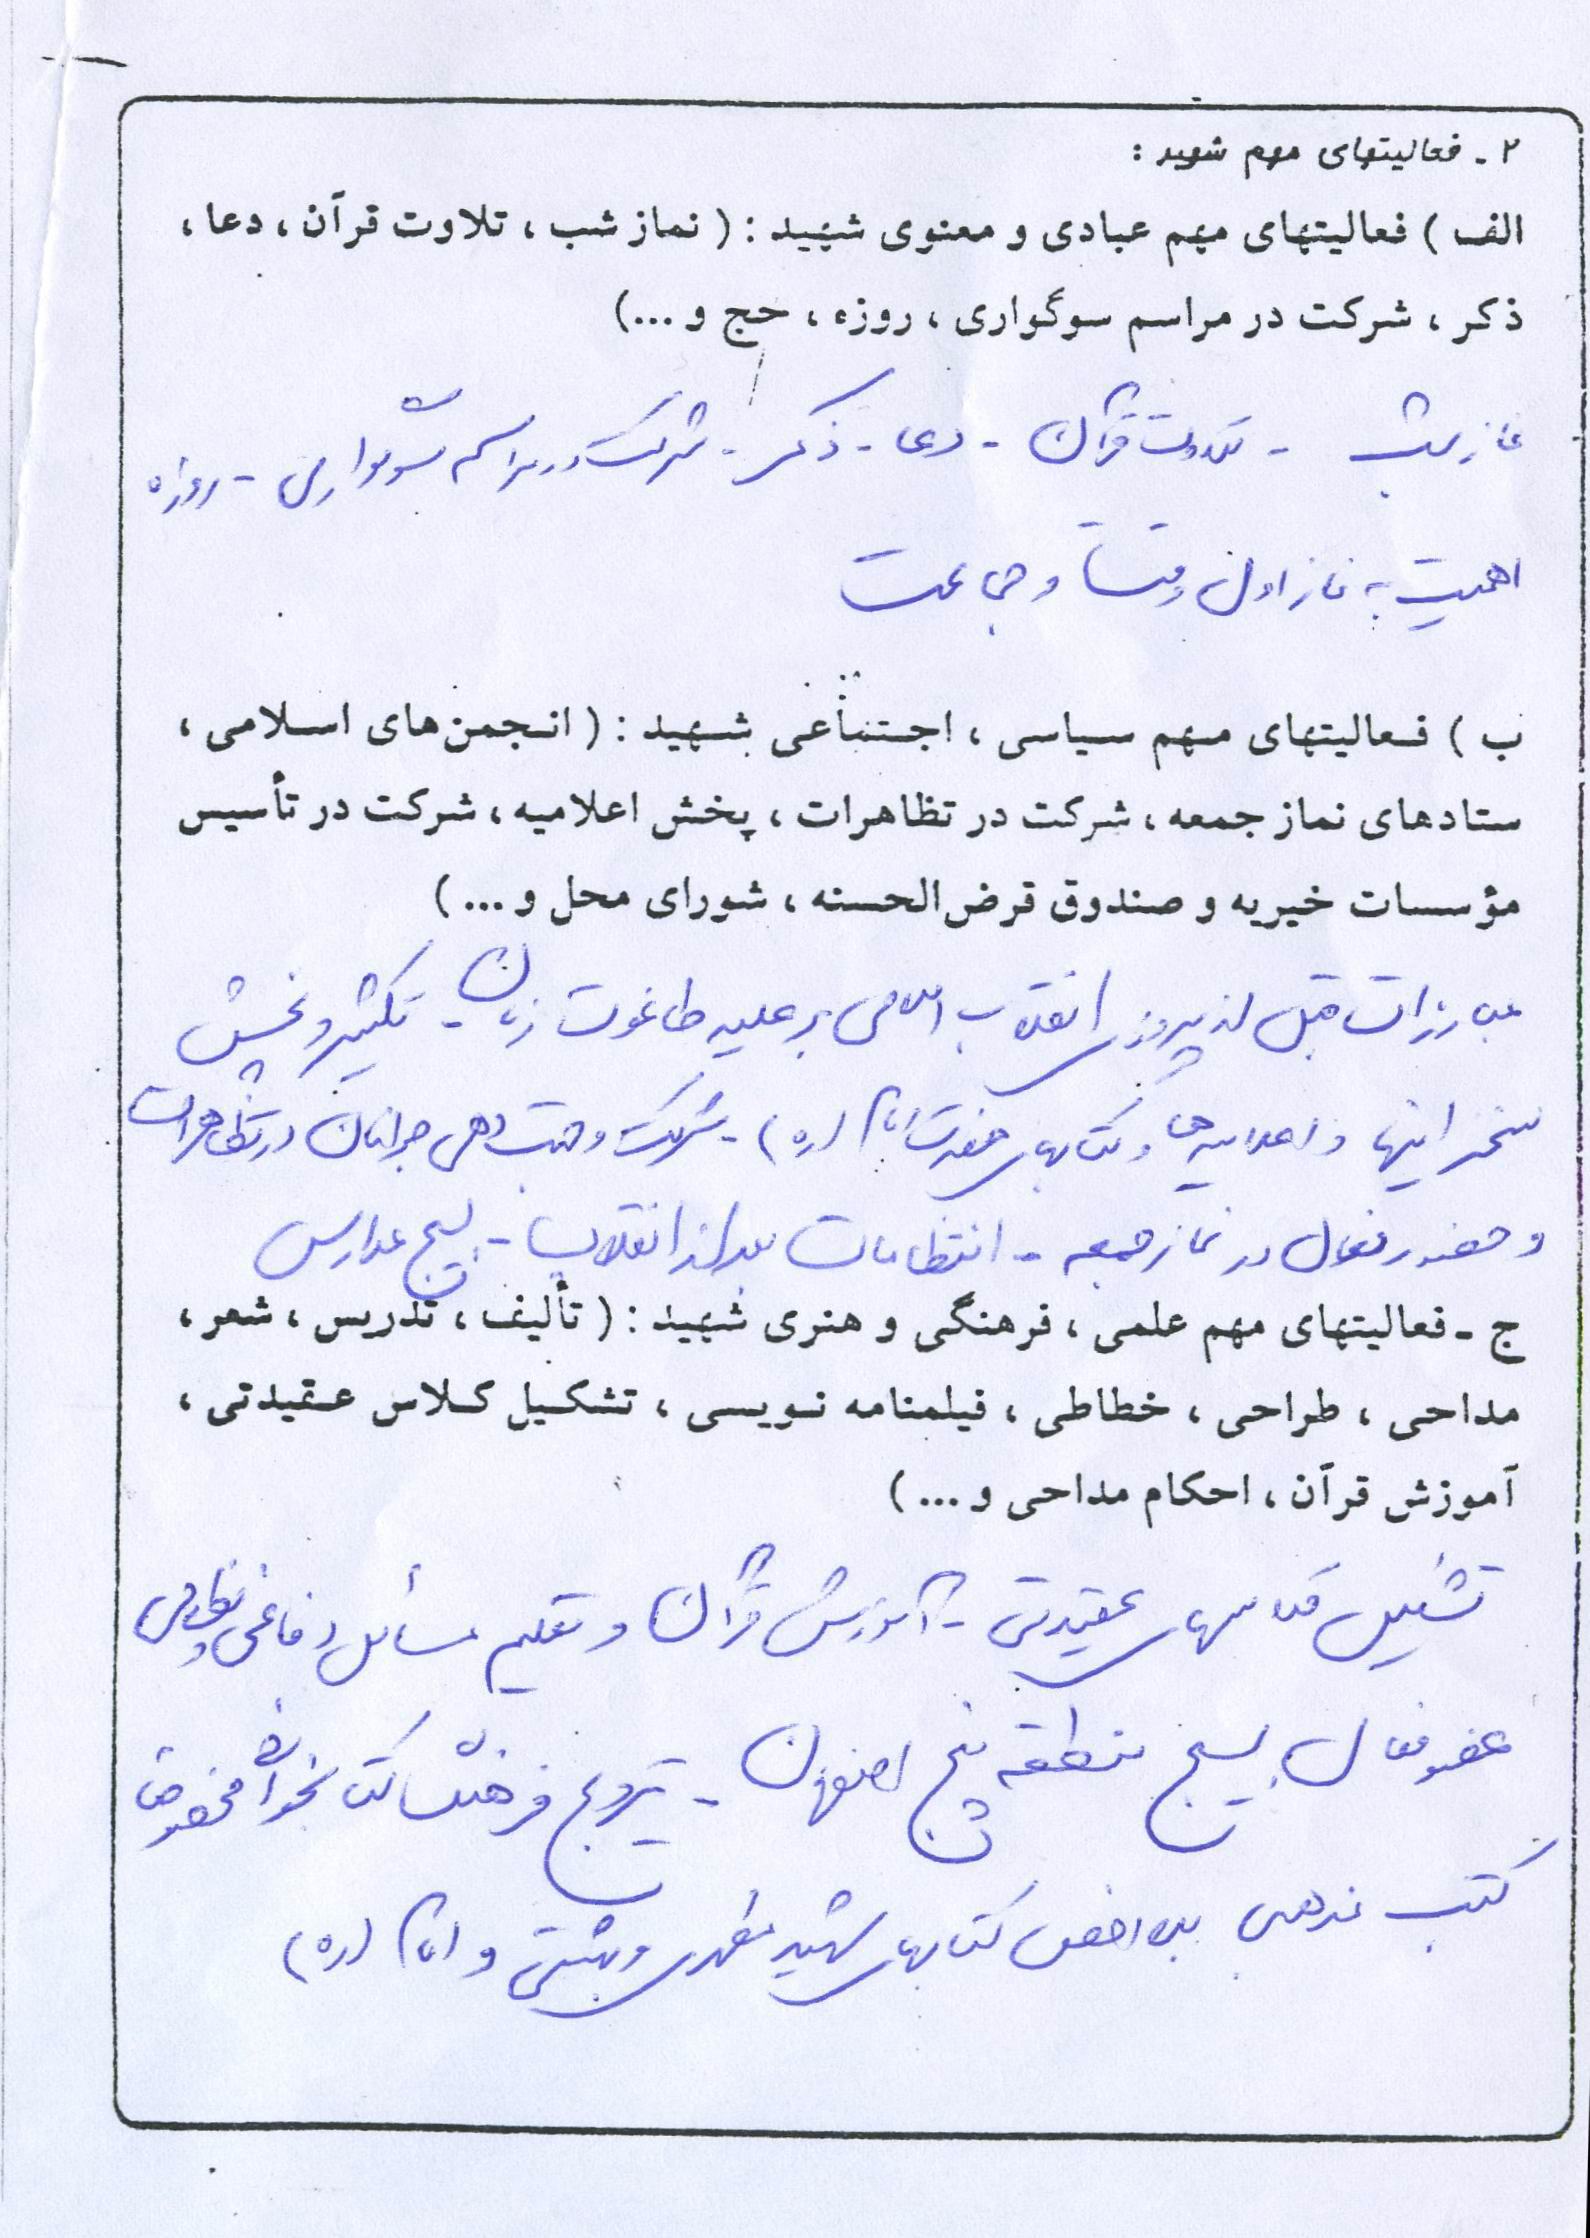 ۲ - فعالیتهای مهم شهید :
الف ) فعالیتهای مهم عبادی و معنوی شهید : ( نماز شب ، تلاوت قرآن ، دعا ،
ذکر ، شرکت در مراسم سوگواری ، روزه ، حج و ...)
نماز شب - تلاوت قرآن - دعا - ذکر - شرکت در مراسم سوگواری - روزه
اهمیت به نماز اول وقت و جماعت
ب ) فعالیتهای مهم سیاسی ، اجتماعی شهید : ( انجمن‌های اسلامی ،
ستادهای نماز جمعه ، شرکت در تظاهرات ، پخش اعلامیه ، شرکت در تأسیس
مؤسسات خیریه و صندوق قرض‌الحسنه ، شورای محل و ... )
مبارزات قبل از پیروزی انقلاب اسلامی بر علیه طاغوت زمان - تکثیر و پخش
سخنرانیها و اعلامیه‌ها و کتابهای حضرت امام (ره) - شرکت و جهت دهی جوانان در تظاهرات
و حضور فعال در نماز جمعه - انتظامات بعد از انقلاب - بسیج مدارس
ج - فعالیتهای مهم علمی ، فرهنگی و هنری شهید : ( تألیف ، تدریس ، شعر ،
مداحی ، طراحی ، خطاطی ، فیلمنامه نویسی ، تشکیل کلاس عقیدتی ،
آموزش قرآن ، احکام مداحی و ... )
تشکیل کلاسهای عقیدتی - آموزش قرآن و تعلیم مسائل دفاعی و نظامی
عضو فعال بسیج منطقه پنج اصفهان - ترویج فرهنگ کتابخوانی مخصوصاً
کتب مذهبی بالاخص کتابهای شهید مطهری و بهشتی و امام (ره)